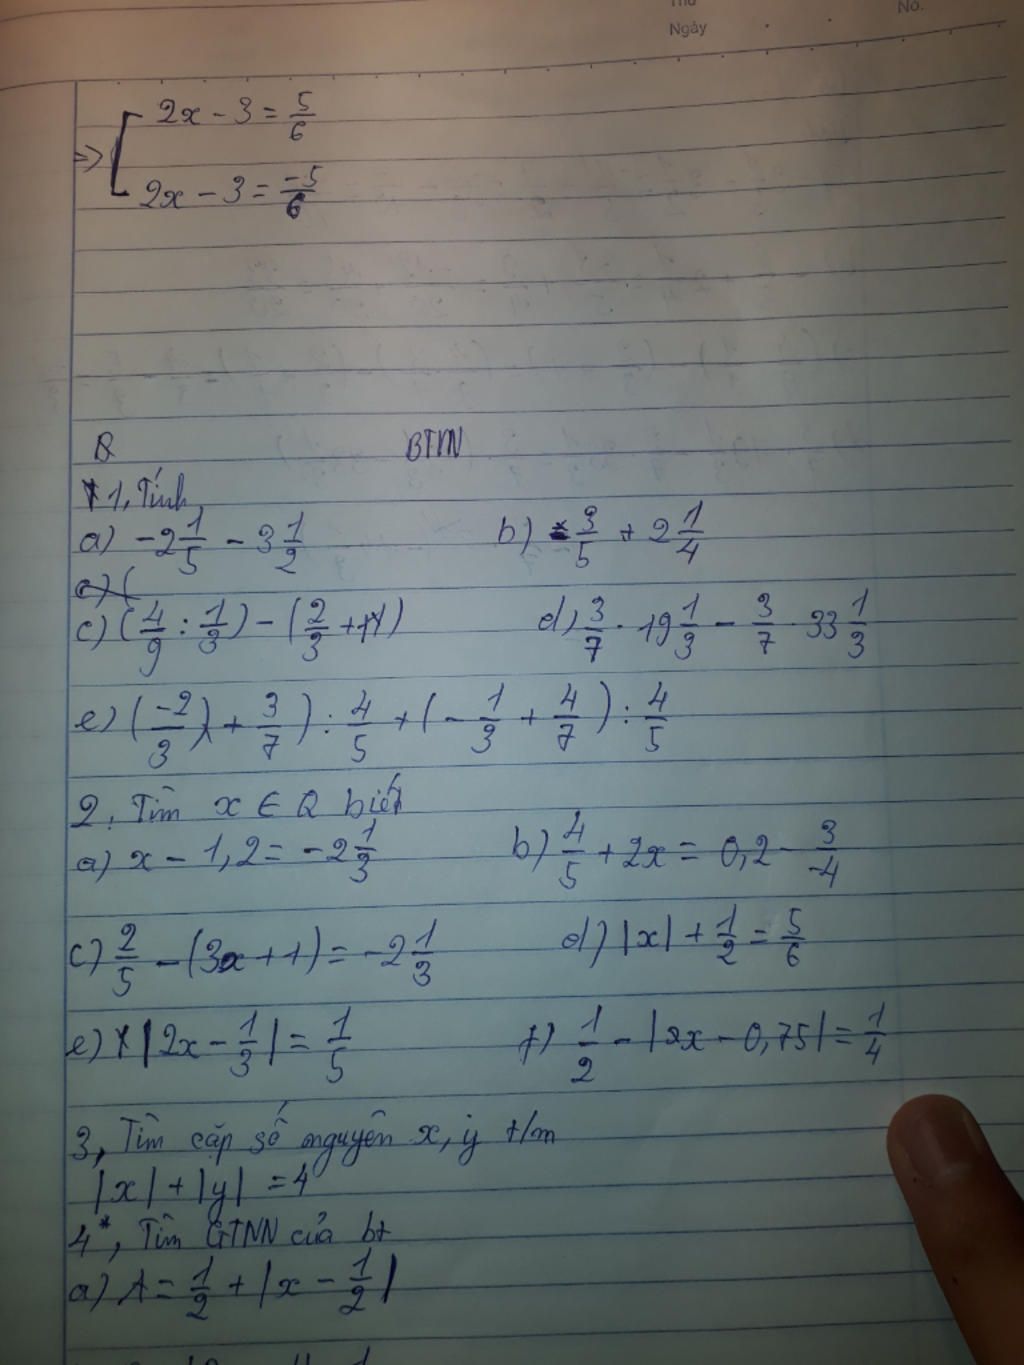 Thứ
Ngày No.
=> [ 2x - 3 = 5/6
2x - 3 = -5/6
BTVN
1, Tính
a) -2 1/5 - 3 1/2 b) 3/5 + 2 1/4
c) (4/9 : 1/3) - (2/3 + 1) d) 3/7 . 19 1/3 - 3/7 . 33 1/3
e) (-2/3) + 3/7) : 4/5 + (-1/3 + 4/7) : 4/5
2, Tìm x ∈ Q biết
a) x - 1,2 = -2 1/3 b) 4/5 + 2x = 0,2 - 3/-4
c) 2/5 - (3x + 1) = -2 1/3 d) |x| + 1/2 = 5/6
e) |2x - 1/3| = 1/5 f) 1/2 - |2x - 0,75| = 1/4
3, Tìm cặp số nguyên x, y t/m
|x| + |y| = 4
4*, Tìm GTNN của bt
a) A = 1/2 + |x - 1/2|